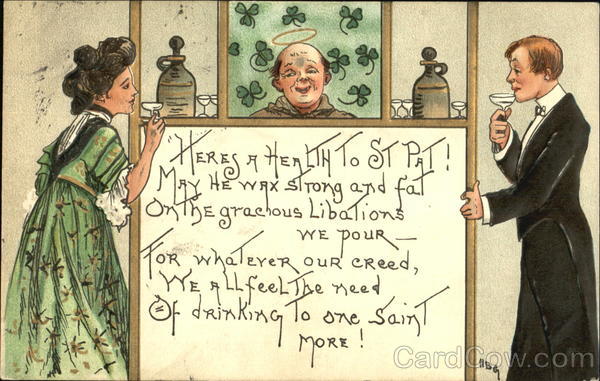 "HERES A HEALTH TO ST PAT!
MAY HE WAX STRONG AND FAT
ON THE GRACIOUS LIBATIONS
WE POUR —
FOR WHATEVER OUR CREED,
WE ALL FEEL THE NEED
OF DRINKING TO ONE SAINT
MORE!
HBG
CardCow.com